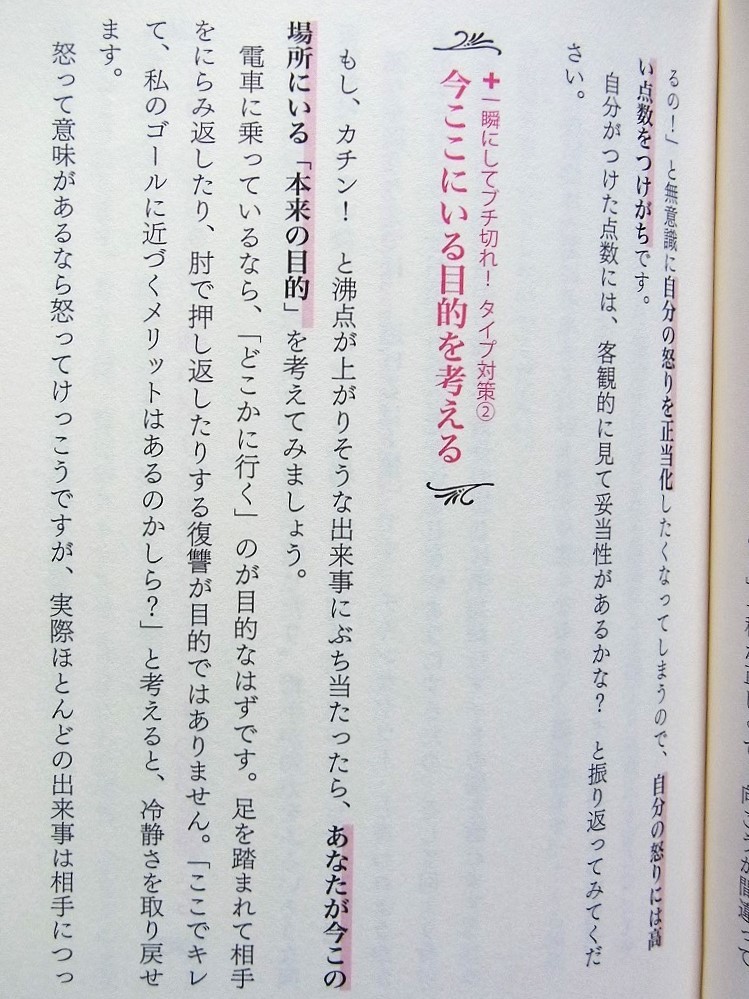 るの！」と無意識に自分の怒りを正当化したくなってしまうので、自分の怒りには高
い点数をつけがちです。
自分がつけた点数には、客観的に見て妥当性があるかな？　と振り返ってみてくだ
さい。
✚一瞬にしてブチ切れ！　タイプ対策②
今ここにいる目的を考える
もし、カチン！　と沸点が上がりそうな出来事にぶち当たったら、あなたが今この
場所にいる「本来の目的」を考えてみましょう。
電車に乗っているなら、「どこかに行く」のが目的なはずです。足を踏まれて相手
をにらみ返したり、肘で押し返したりする復讐が目的ではありません。「ここでキレ
て、私のゴールに近づくメリットはあるのかしら？」と考えると、冷静さを取り戻せ
ます。
怒って意味があるなら怒ってけっこうですが、実際ほとんどの出来事は相手につっ